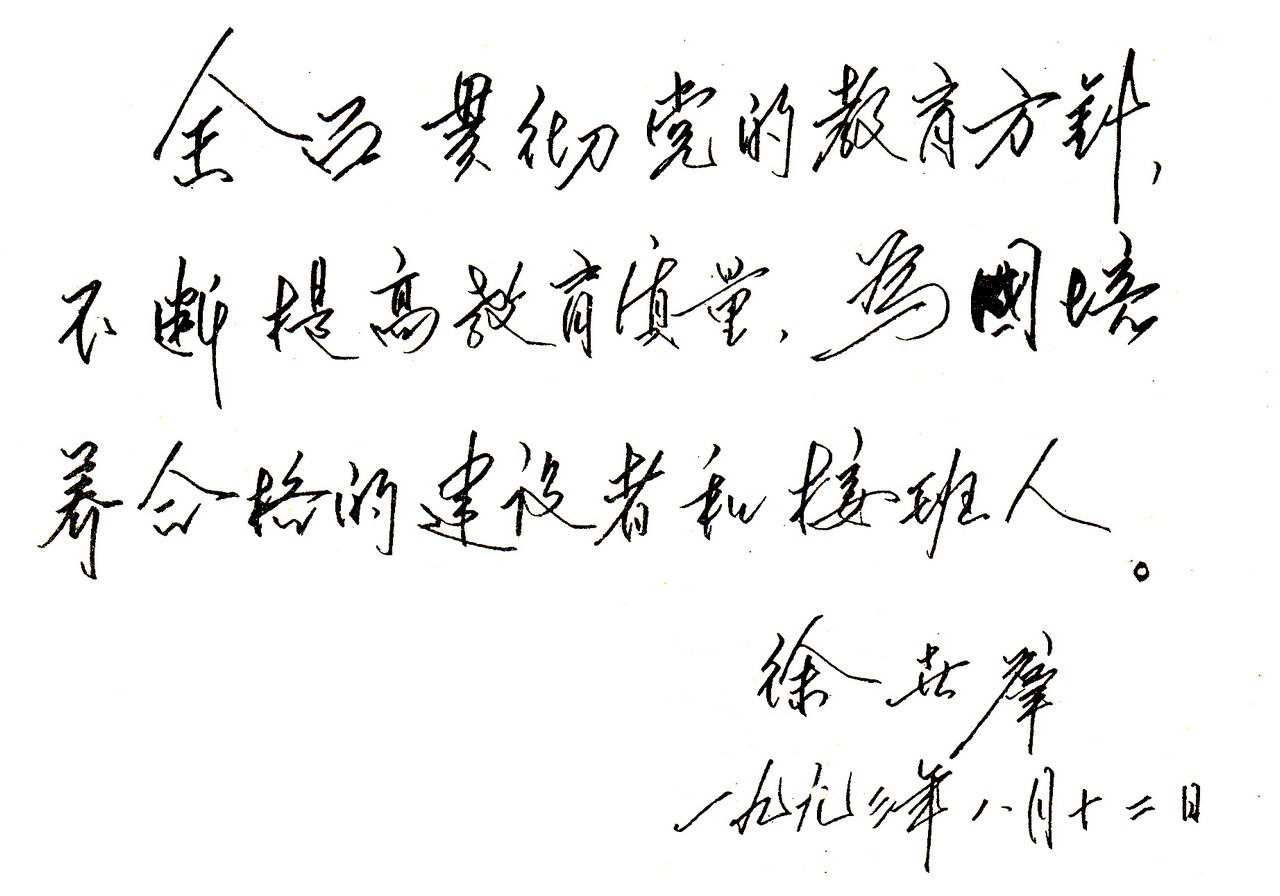 全面贯彻党的教育方針，
不断提高教育质量，為國培
养合格的建设者和接班人。
徐世群
一九九三年八月十二日